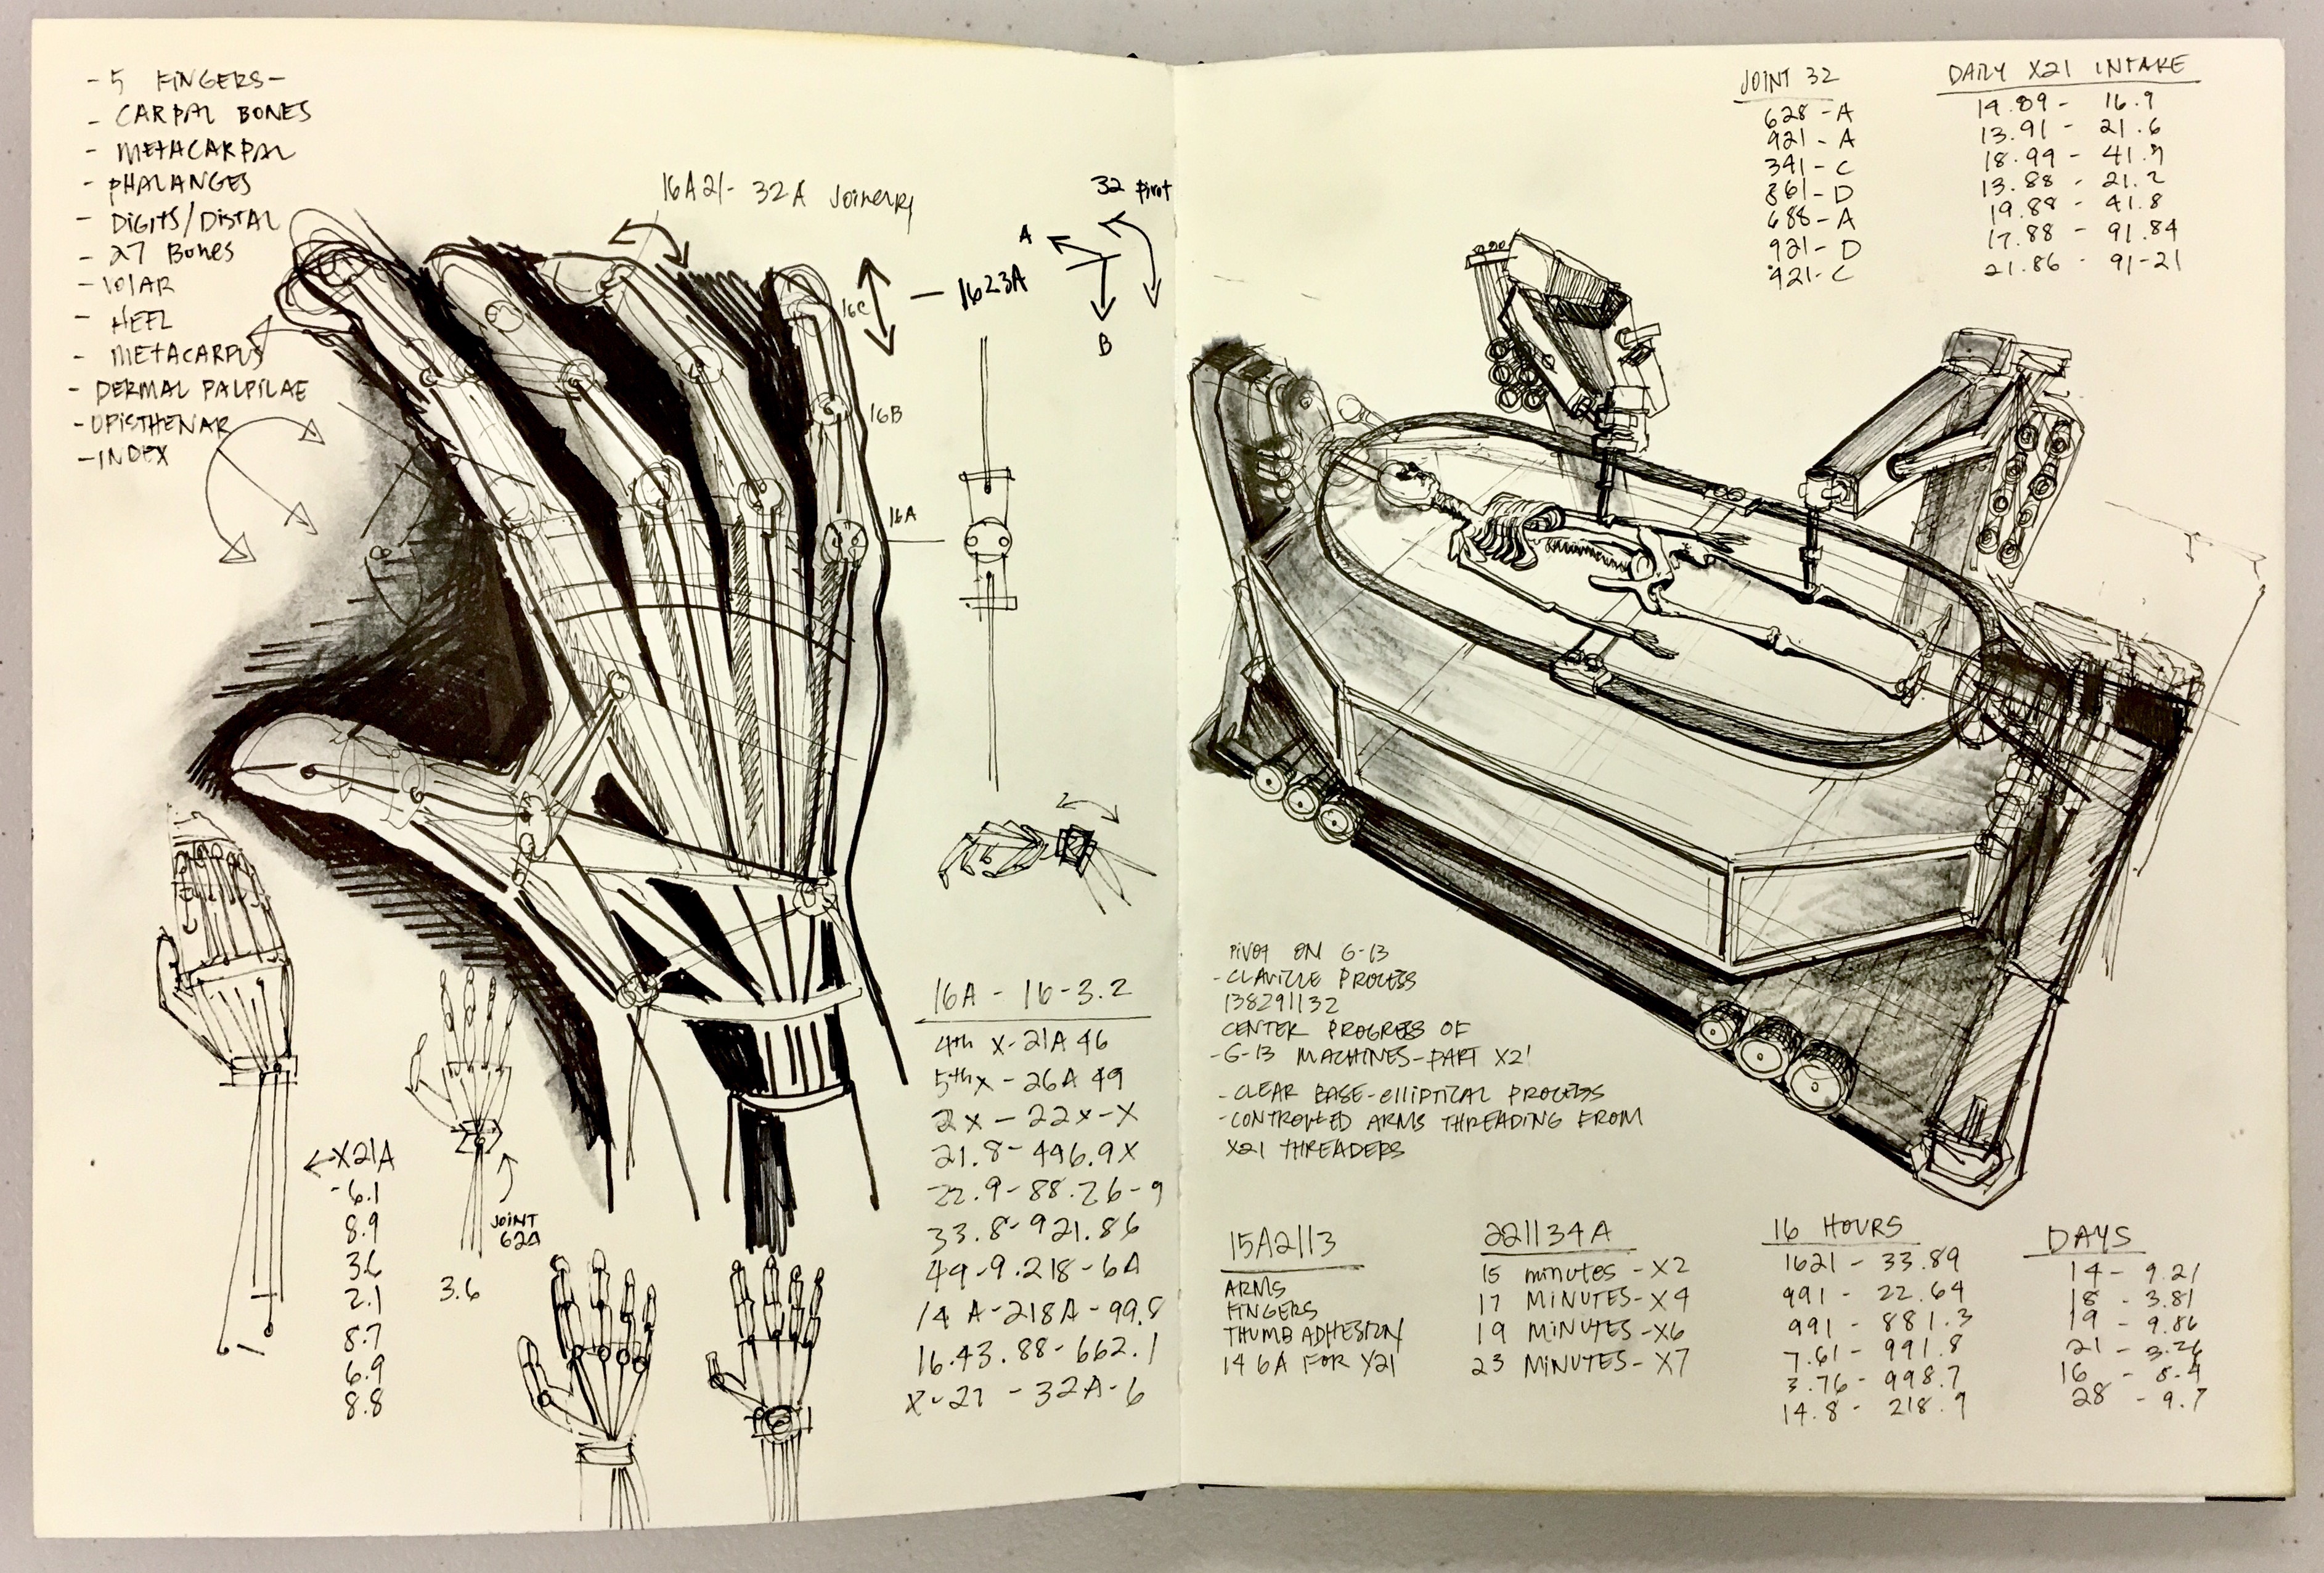 - 5 FINGERS -
- CARPAL BONES
- METACARPAL
- PHALANGES
- DIGITS/DISTAL
- 27 BONES
- VOLAR
- HEEL
- METACARPUS
- DERMAL PALPILAE
- OPISTHENAR
- INDEX
16A21- 32A JOINERY
32 PIVOT
A
B
16C
— 1623A
16B
16A
X21A
- 6.1
8.9
3.6
2.1
8.7
6.9
8.8
JOINT
62A
3.6
16A - 16-3.2
4th X-21A 46
5th x - 26A 49
2x - 22x-X
21.8-496.9X
22.9-88.26-9
33.8-921.86
49-9.218-6A
14A-218A-99.8
16.43.88-662.1
X-21 - 32A-6
JOINT 32
628-A
921-A
341-C
861-D
688-A
921-D
921-C
DAILY X21 INTAKE
14.89 - 16.9
13.91 - 21.6
18.99 - 41.9
13.88 - 21.2
19.88 - 41.8
17.88 - 91.84
21.86 - 91-21
PIVOT ON G-13
- CLAVICLE PROCESS
138291132
CENTER PROGRESS OF
- G-13 MACHINES-PART X21
- CLEAR BASE-ELLIPTICAL PROCESS
- CONTROLLED ARMS THREADING FROM
X21 THREADERS
15A2113
ARMS
FINGERS
THUMB ADHESION
146A FOR Y21
221134A
15 MINUTES - X2
17 MINUTES - X4
19 MINUTES - X6
23 MINUTES - X7
16 HOURS
1621 - 33.89
991 - 22.64
991 - 881.3
7.61 - 991.8
3.76 - 998.7
14.8 - 218.9
DAYS
14 - 9.21
18 - 3.81
19 - 9.86
21 - 3.26
16 - 8.4
28 - 9.7